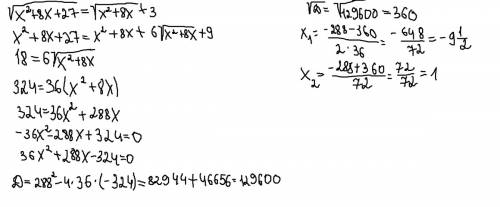 √x²+8x+27 = √x²+8x + 3
x²+8x+27 = x²+8x + 6√x²+8x + 9
18 = 6√x²+8x
324 = 36(x²+8x)
324 = 36x² + 288x
-36x²-288x+324=0
36x²+288x-324=0
D = 288²-4·36·(-324) = 82944+46656 = 129600
√D = √129600 = 360
x₁ = (-288-360)/(2·36) = -648/72 = -9 1/2
x₂ = (-288+360)/72 = 72/72 = 1